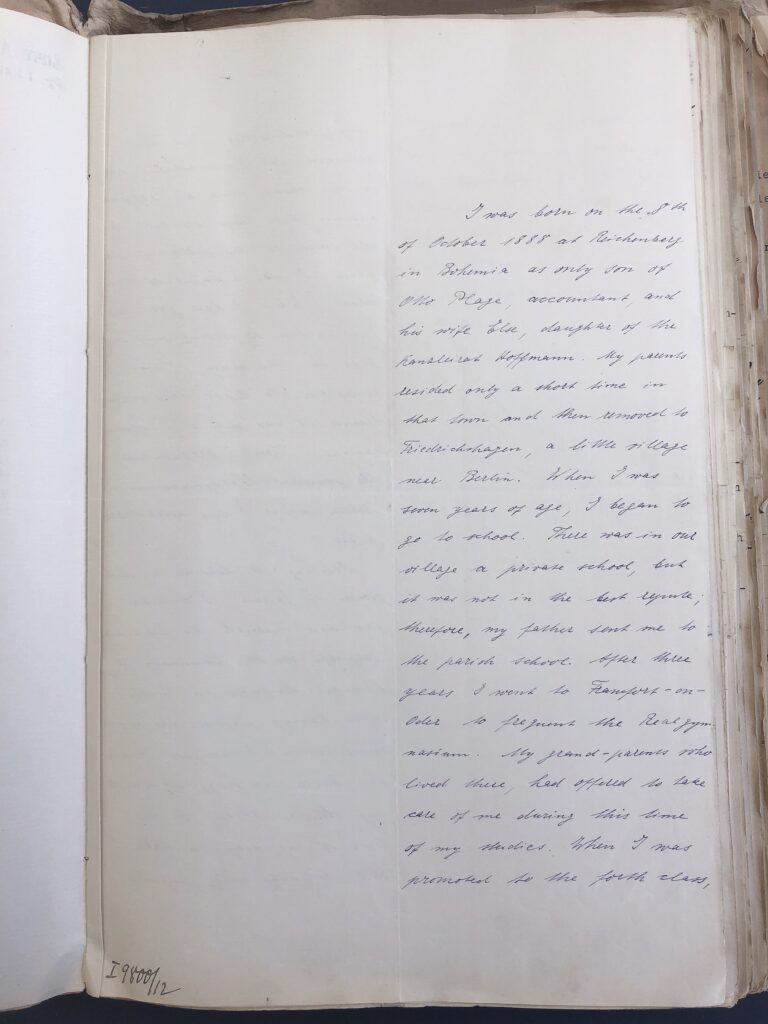 I was born on the 8th
of October 1888 at Reichenberg
in Bohemia as only son of
Otto Plage, accountant, and
his wife Else, daughter of the
Kanzleirat Hoffmann. My parents
resided only a short time in
that town and then removed to
Friedrichshagen, a little village
near Berlin. When I was
seven years of age, I began to
go to school. There was in our
village a private school, but
it was not in the best repute;
therefore, my father sent me to
the parish school. After three
years I went to Frankfort-on-
Oder to frequent the Realgym-
nasium. My grand-parents who
lived there, had offered to take
care of me during this time
of my studies. When I was
promoted to the forth class,
I 9800/12